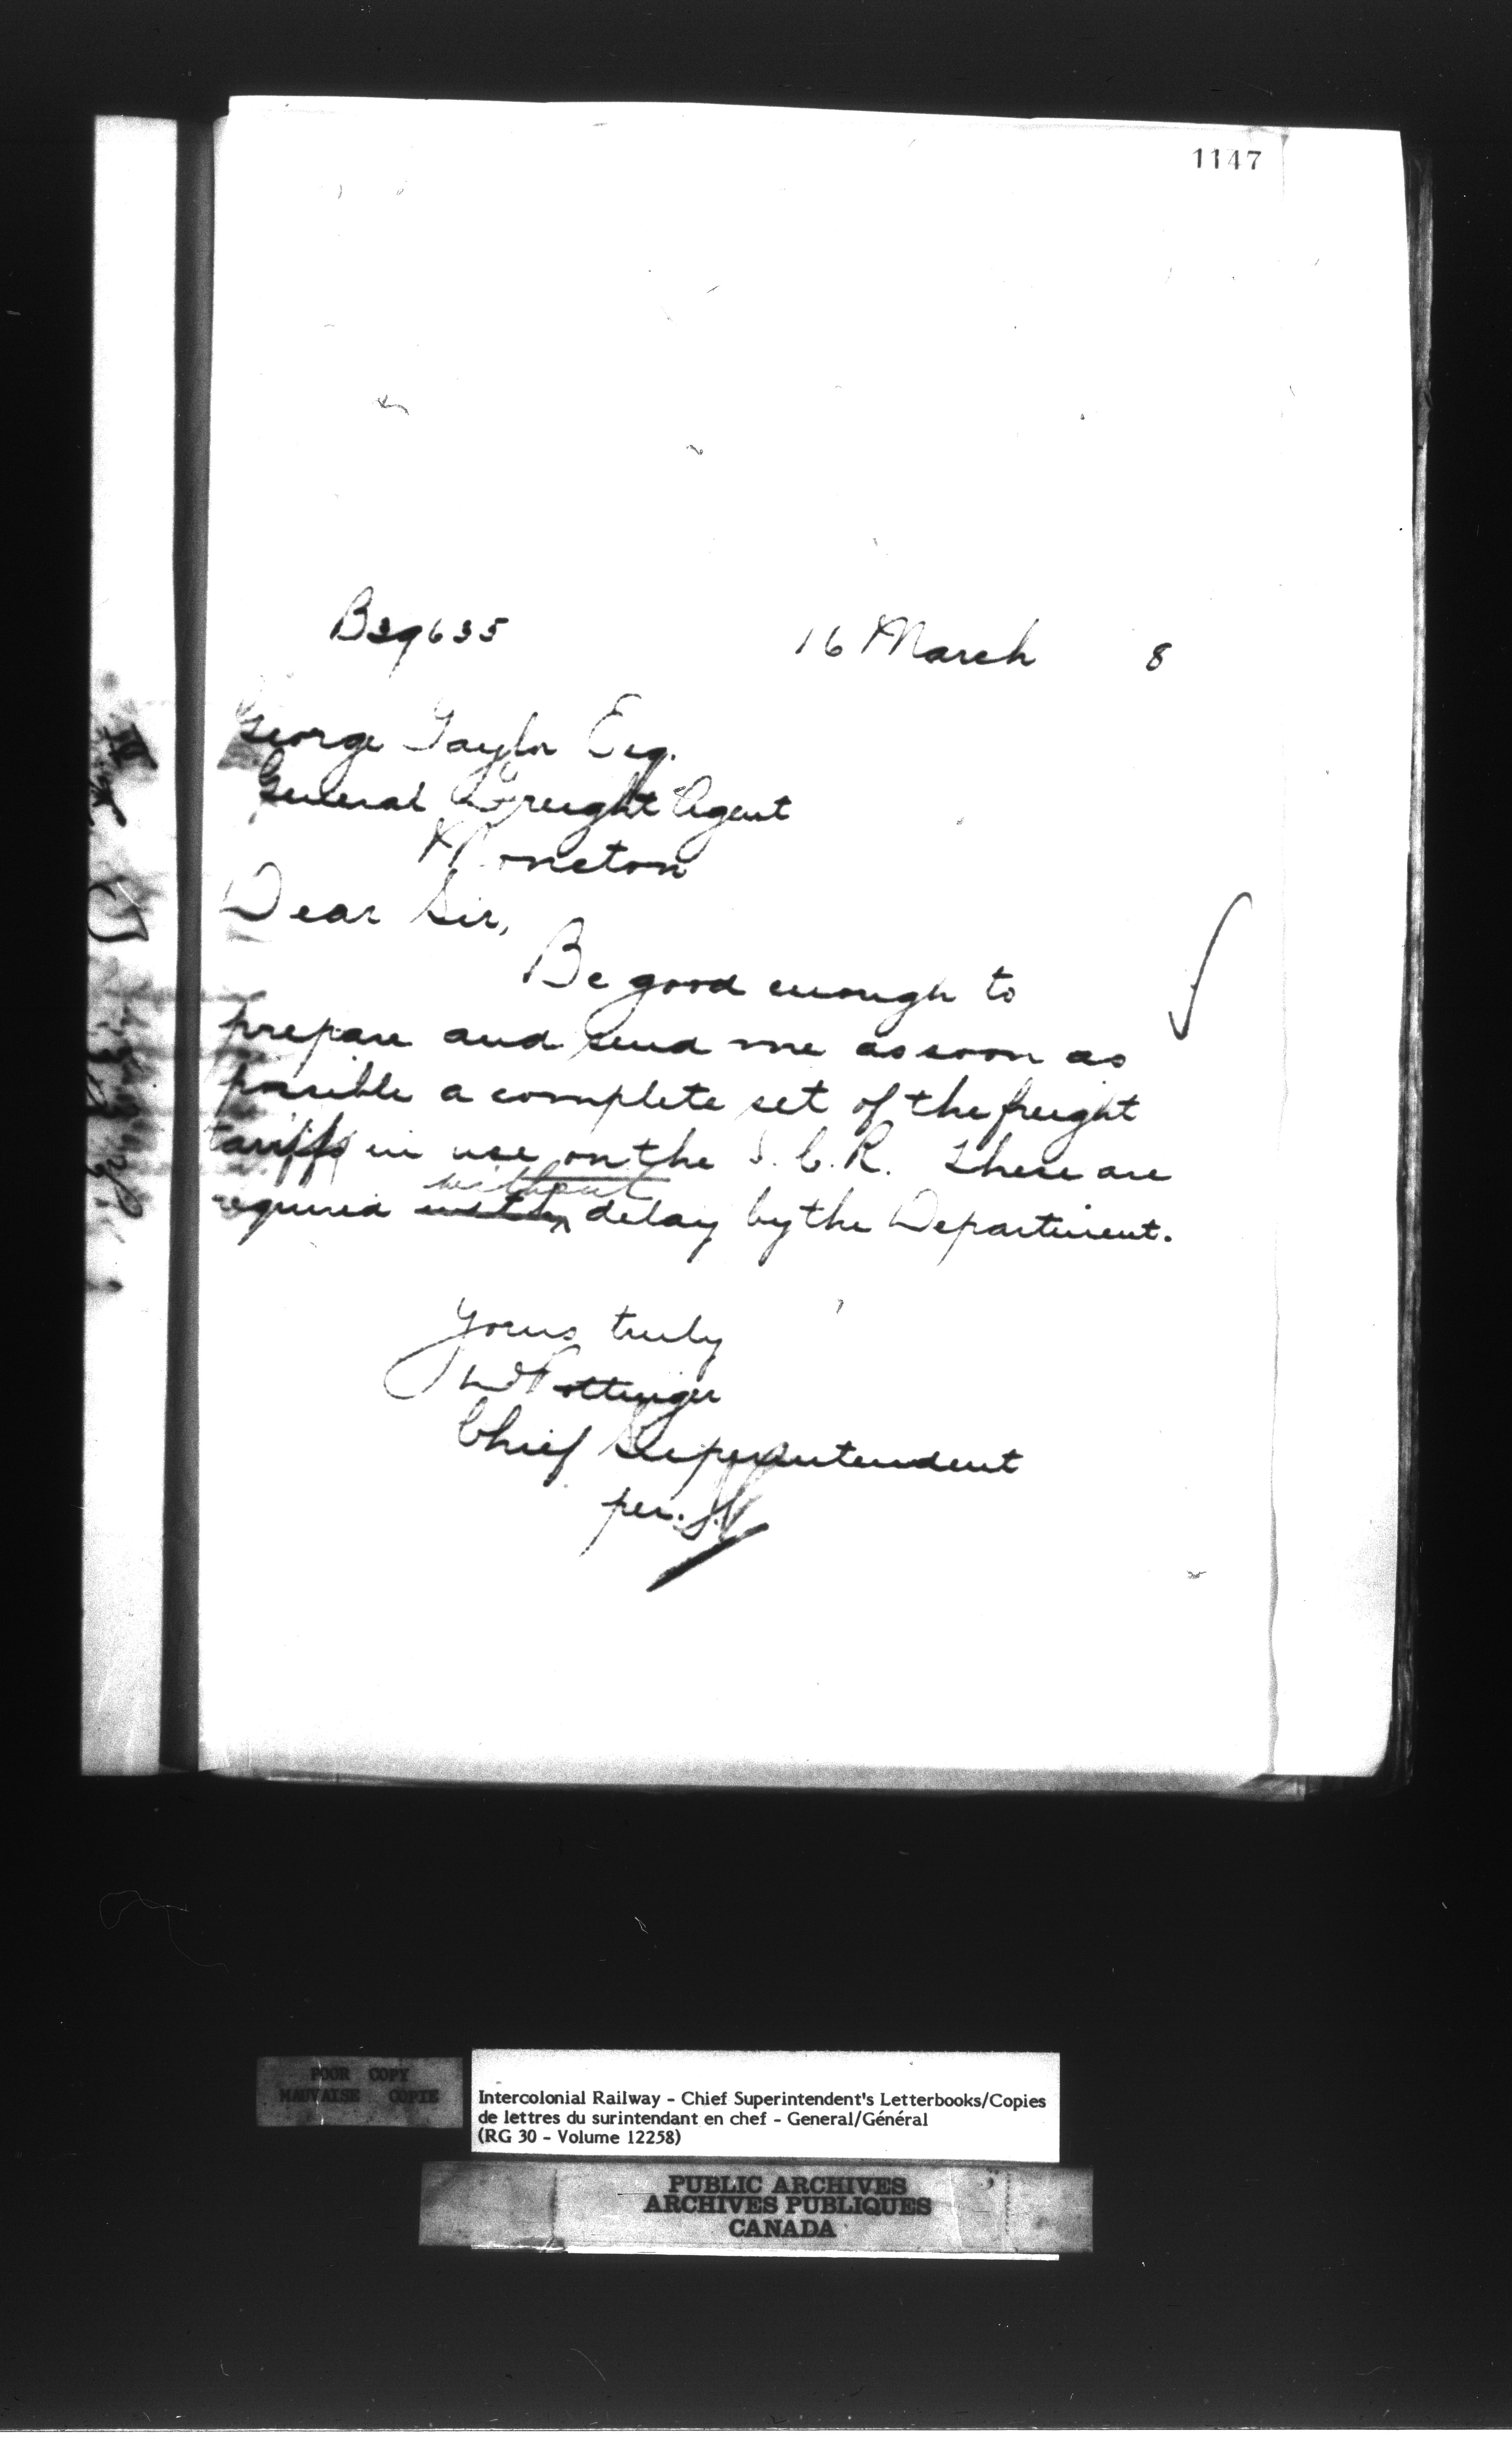 1147
B39635 16 March 8
George Taylor Esq.
General Freight Agent
Moncton
Dear Sir,
Be good enough to
prepare and send me as soon as
possible a complete set of the freight
tariffs in use on the I.C.R. These are
without
required with delay by the Department.
Yours truly
D Pottinger
Chief Superintendent
per.
POOR COPY
MAUVAISE COPIE
Intercolonial Railway - Chief Superintendent's Letterbooks/Copies
de lettres du surintendant en chef - General/Général
(RG 30 - Volume 12258)
PUBLIC ARCHIVES
ARCHIVES PUBLIQUES
CANADA